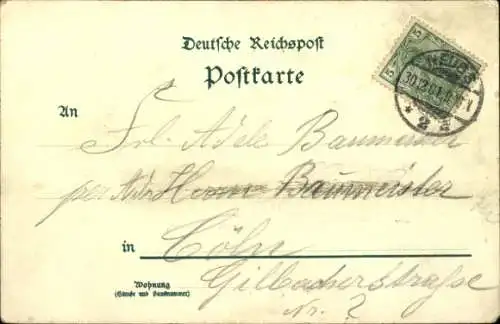 Deutsche Reichspost
Postkarte
NEUSS
30.12.01
* 2 z
An
Frl. Adele Baumeister
per Adr. Herrn Baumeister
in Cöln
Gilbacherstraße
Nr. ?
Wohnung
(Straße und Hausnummer)